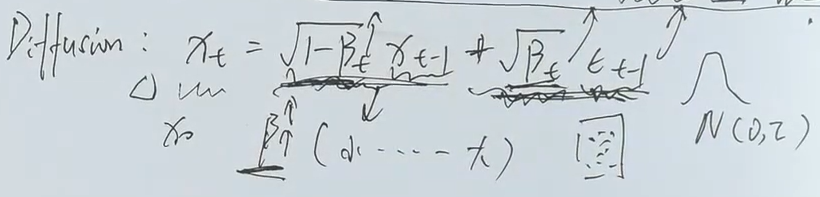 Diffusion: x_t = √(1-β_t) x_{t-1} + √β_t ε_{t-1}
x_0 β N(0,I)